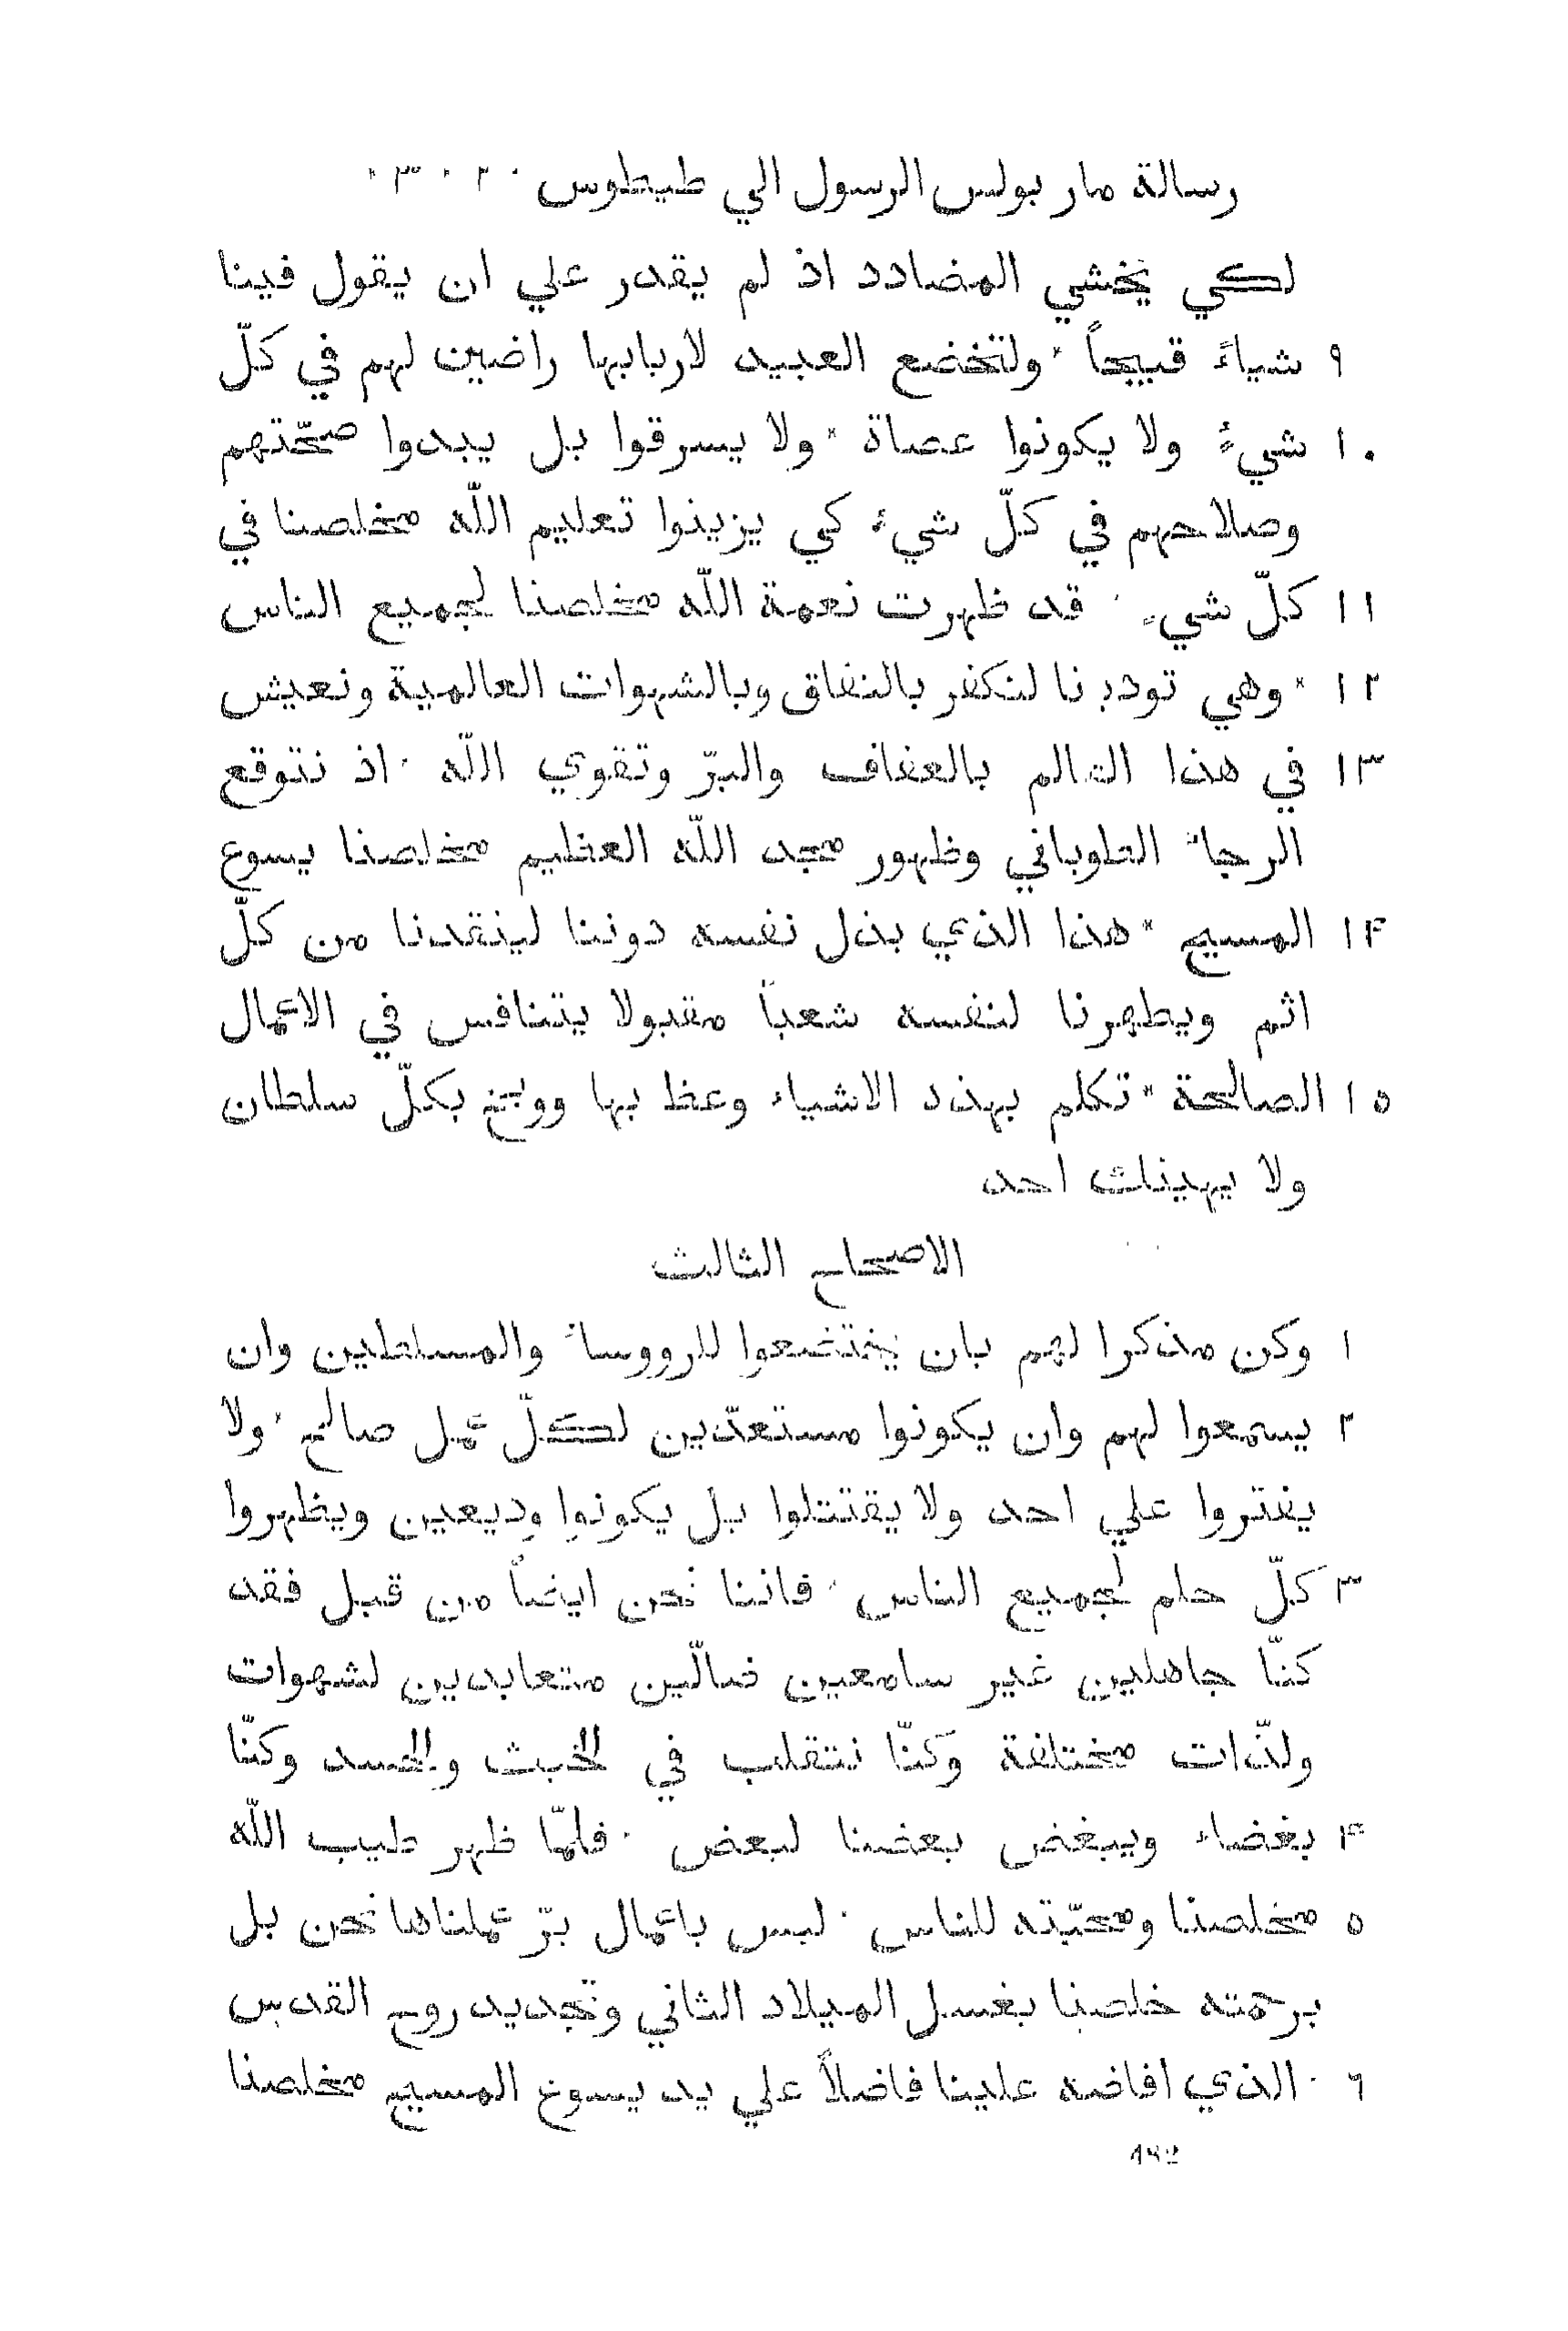 رسالة مار بولس الرسول الي طيطوس ٠ ٢ ٠ ٣ ٠
لكي يخشي المضادد اذ لم يقدر علي ان يقول فينا
٩ شياءً قبيحاً * ولتخضع العبيد لاربابها راضين لهم في كلّ
١٠ شيءٌ ولا يكونوا عصاة * ولا يسرقوا بل يبدوا صحّتهم
وصلاحهم في كلّ شيء كي يزينوا تعليم اللّه مخلصنا في
١١ كلّ شيء ٠ قد ظهرت نعمة اللّه مخلصنا لجميع الناس
١٢ * وهي تودبنا لنكفر بالنفاق وبالشهوات العالمية ونعيش
١٣ في هذا العالم بالعفاف والبرّ وتقوي اللّه ٠ اذ نتوقع
الرجاء الطوباني وظهور مجد اللّه العظيم مخلصنا يسوع
١٤ المسيح * هذا الذي بذل نفسه دوننا لينقذنا من كلّ
اثم ويطهرنا لنفسه شعباً مقبولا يتنافس في الاعمال
١٥ الصالحة * تكلم بهذه الاشياء وعظ بها ووبخ بكلّ سلطان
ولا يهينك احد
الاصحاح الثالث
١ وكن مذكرا لهم بان يختضعوا للرووساء والمسلطين وان
٢ يسمعوا لهم وان يكونوا مستعدّين لكلّ عمل صالح * ولا
يفتروا علي احد ولا يقتتلوا بل يكونوا وديعين ويظهروا
٣ كلّ حلم لجميع الناس ٠ فاننا نحن ايضاً من قبل فقد
كنّا جاهلين غير سامعين ضالّين متعابدين لشهوات
ولذّات مختلفة وكنّا نتقلب في الخبث والحسد وكنّا
٤ بغضاء ويبغض بعضنا لبعض ٠ فلمّا ظهر طيب اللّه
٥ مخلصنا ومحبّته للناس ٠ ليس باعمال برّ عملناها نحن بل
برحمته خلصنا بغسل الميلاد الثاني وتجديد روح القدس
٦ ٠ الذي افاضه علينا فاضلاً علي يد يسوع المسيح مخلصنا